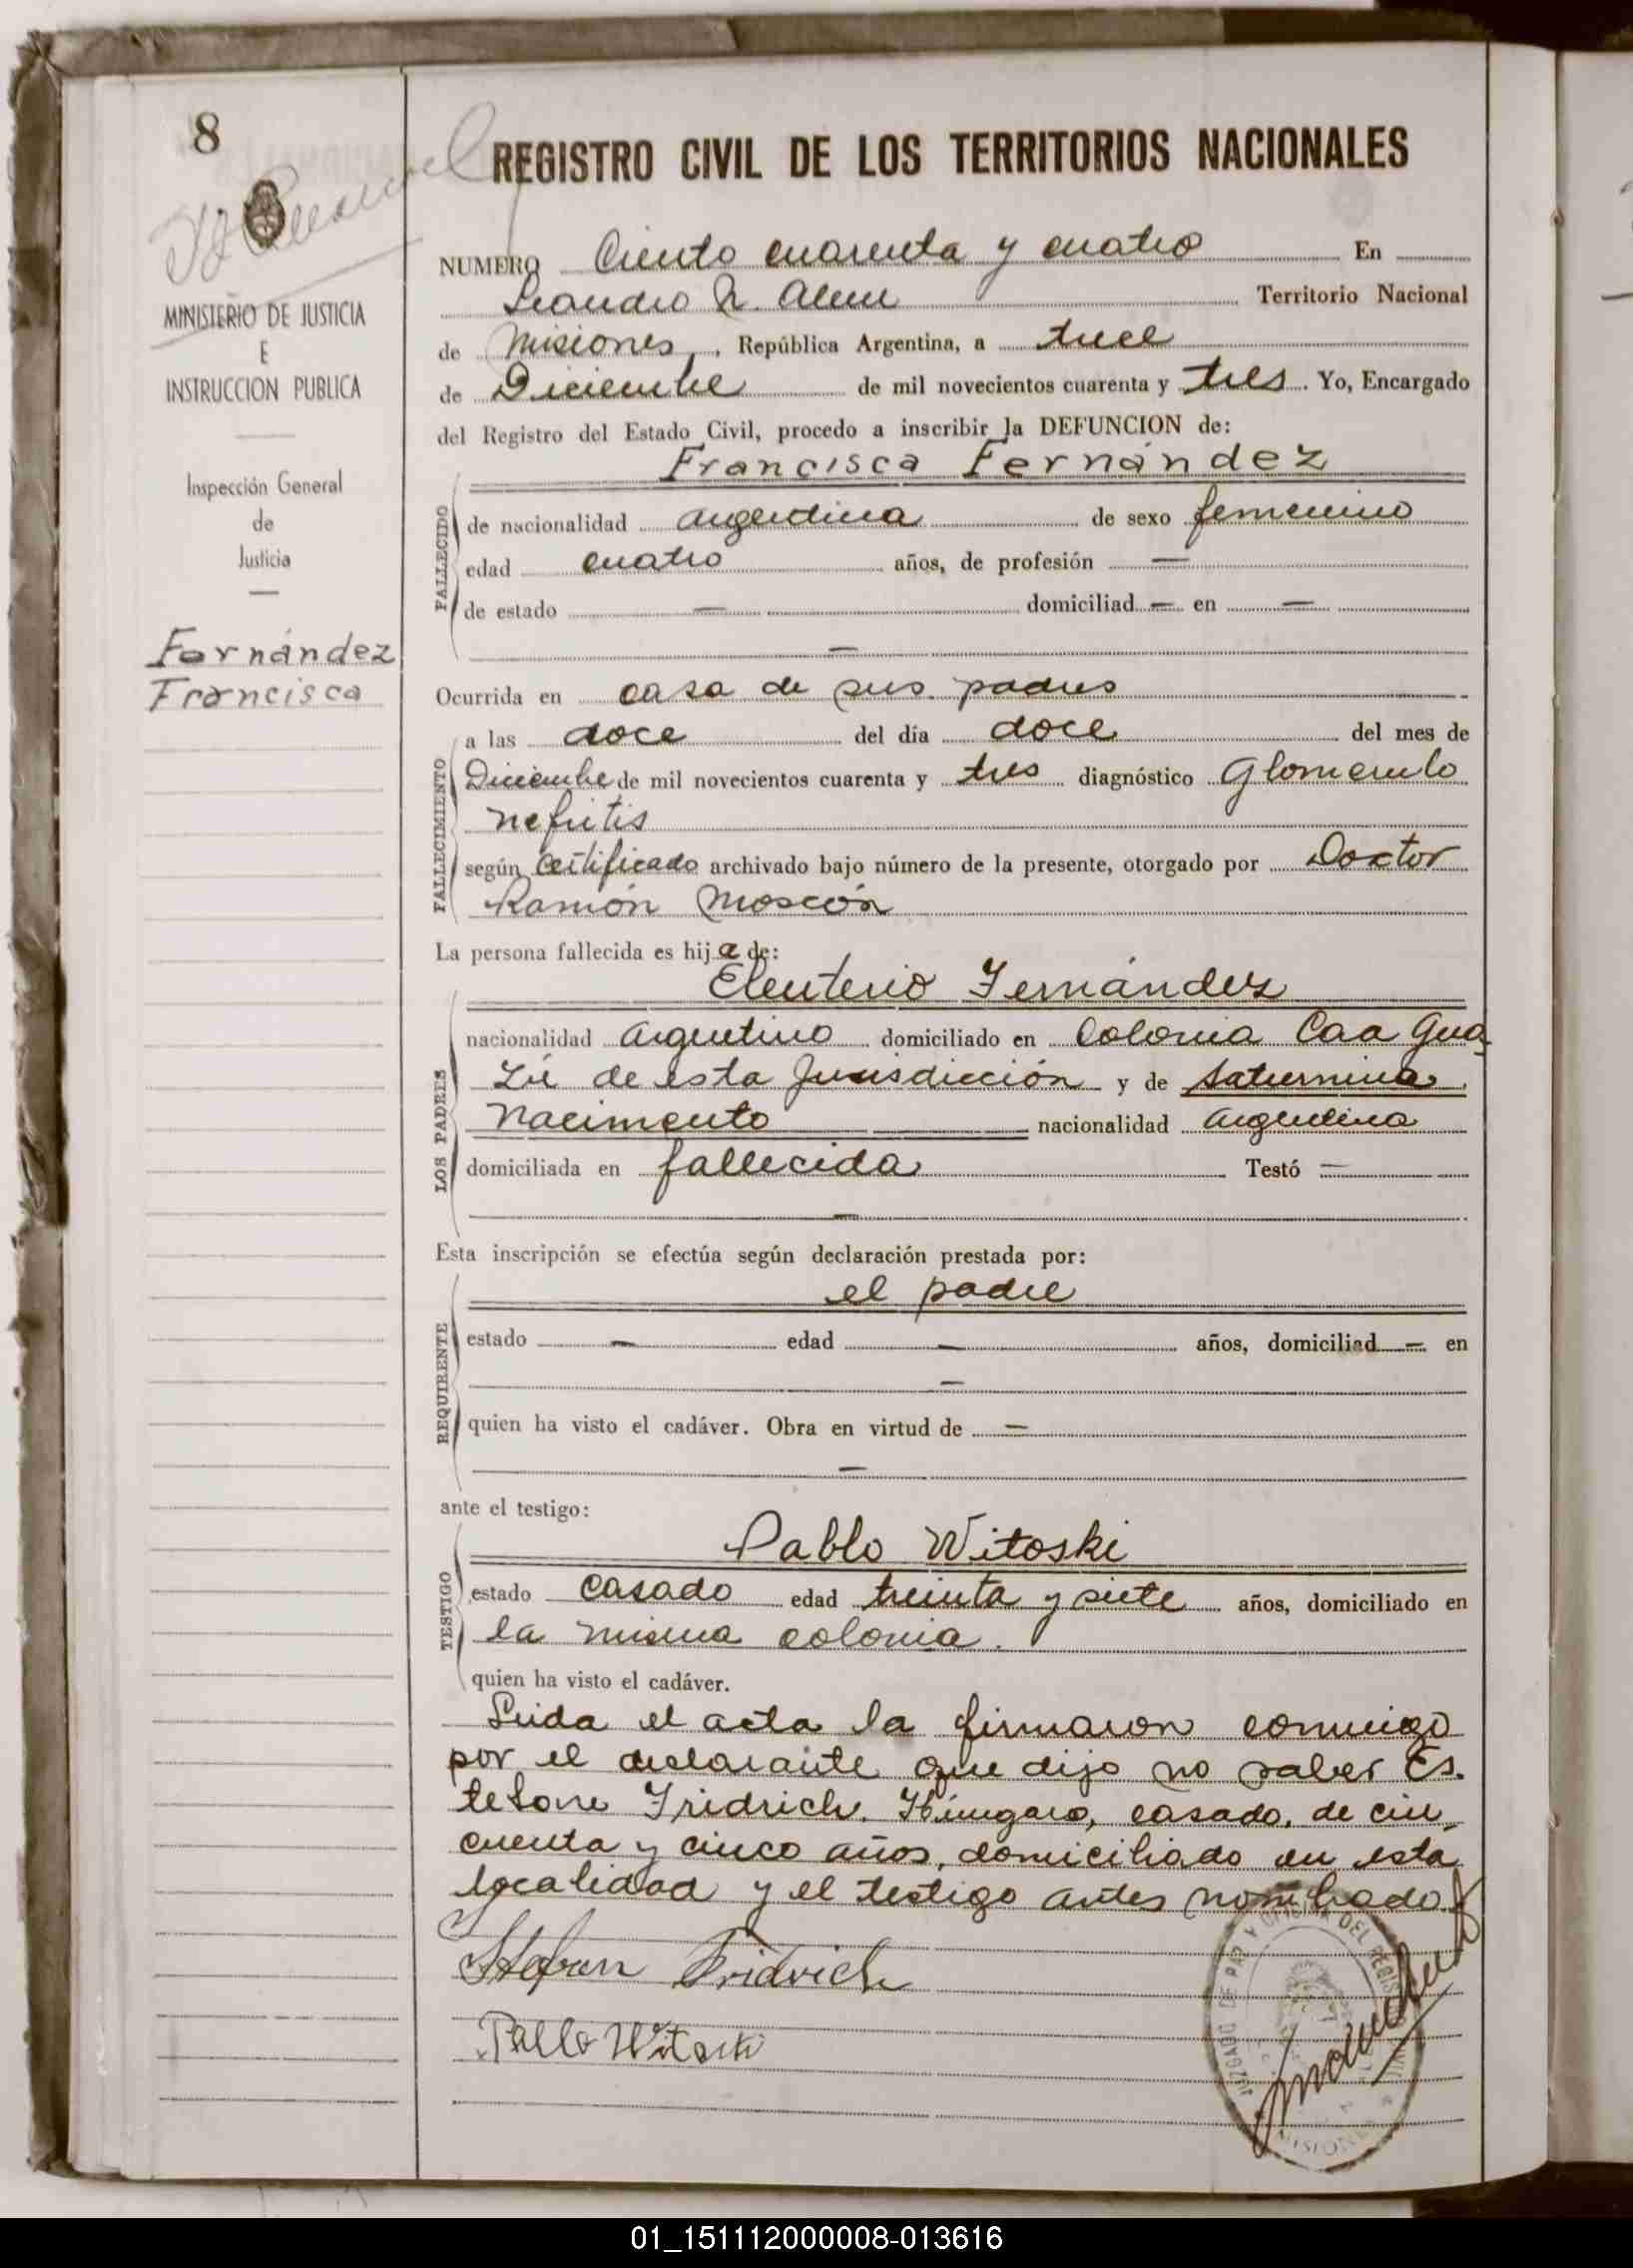 8
REGISTRO CIVIL DE LOS TERRITORIOS NACIONALES
MINISTERIO DE JUSTICIA
E
INSTRUCCION PUBLICA
Inspección General
de
Justicia
Fernández
Francisca
NUMERO Ciento cuarenta y cuatro En
Leandro N. Alem Territorio Nacional
de Misiones, República Argentina, a trece
de Diciembre de mil novecientos cuarenta y tres. Yo, Encargado
del Registro del Estado Civil, procedo a inscribir la DEFUNCION de:
Francisca Fernández
FALLECIDO
de nacionalidad argentina de sexo femenino
edad cuatro años, de profesión —
de estado — domiciliad — en —
—
Ocurrida en casa de sus padres
FALLECIMIENTO
a las doce del día doce del mes de
Diciembre de mil novecientos cuarenta y tres diagnóstico Glomerulo
nefritis
según certificado archivado bajo número de la presente, otorgado por Doctor
Ramón Moscón
La persona fallecida es hija de:
Eleuterio Fernández
LOS PADRES
nacionalidad argentino domiciliado en Colonia Caa Gua-
zú de esta Jurisdicción y de Saturnina
Nacimento nacionalidad argentina
domiciliada en fallecida Testó —
—
Esta inscripción se efectúa según declaración prestada por:
el padre
REQUIRENTE
estado — edad — años, domiciliad — en
—
quien ha visto el cadáver. Obra en virtud de —
—
ante el testigo:
Pablo Witoski
TESTIGO
estado casado edad treinta y siete años, domiciliado en
la misma colonia.
quien ha visto el cadáver.
Leida el acta la firmaron conmigo
por el declarante que dijo no saber Es-
tefone Fridrich, Húngaro, casado, de cin-
cuenta y cinco años, domiciliado en esta
localidad y el testigo antes nombrado
Stefan Fridrich
Pablo Witoski
JUZGADO DE PAZ Y OFICINA DEL REGISTRO CIVIL
MISIONES
01_151112000008-013616